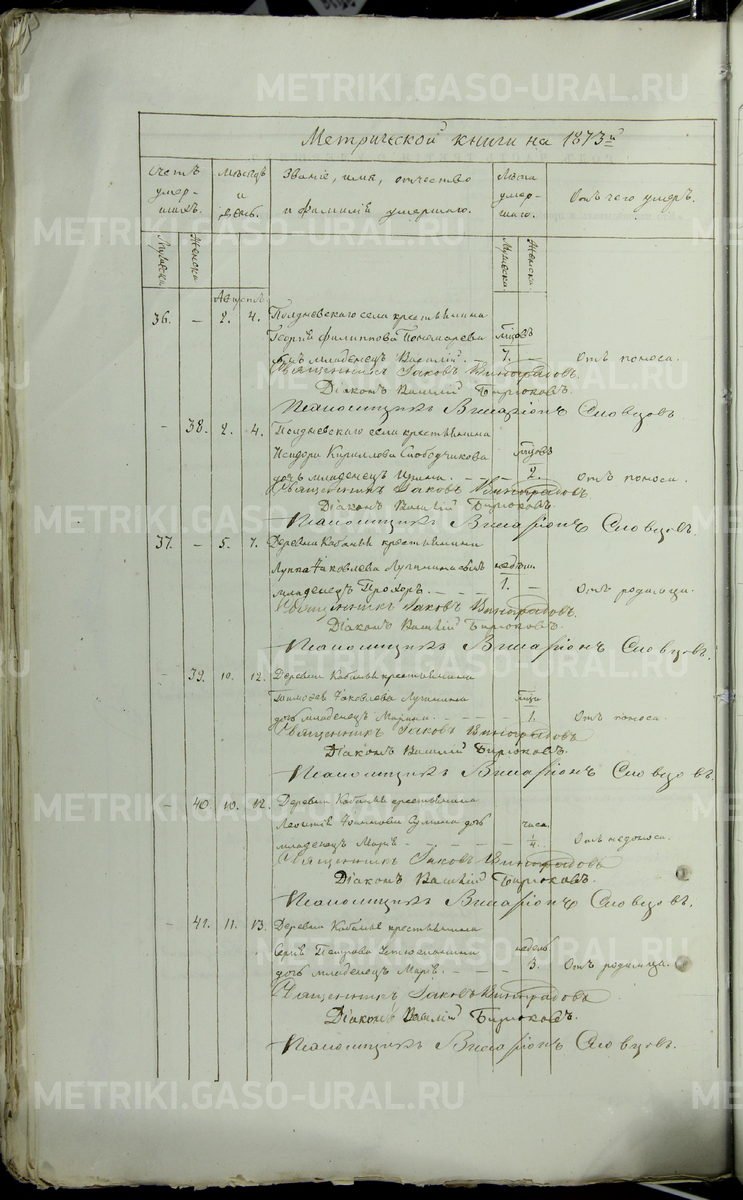 METRIKI.GASO-URAL.RU
Метрической книги на 1873й
Счетъ умер-шихъ.
Мѣсяцъ и день.
Званіе, имя, отчество и фамилія умершаго.
Лѣта умер-шаго.
Отъ чего умеръ.
Мужеска
Женска
Мужеска
Женска
Августъ.
36. – 2. 4. Полдневскаго села крестьянина
Георгія Филиппова Пономарева мѣсяцъ
сынъ младенецъ Василій. 7. – Отъ поноса.
Священникъ Іаковъ Виноградовъ.
Діаконъ Василій Бирюковъ.
Псаломщикъ Виссаріонъ Словцовъ.
– 38. 2. 4. Полдневскаго села крестьянина
Исидора Кириллова Слободчикова мѣсяцъ
дочь младенецъ Ирина. – 2. Отъ поноса.
Священникъ Іаковъ Виноградовъ.
Діаконъ Василій Бирюковъ.
Псаломщикъ Виссаріонъ Словцовъ.
37. – 5. 7. Деревни Кабаньи крестьянина
Луппа Іаковлева Лучинина сынъ недѣли.
младенецъ Прохоръ. 1. – Отъ родимца.
Священникъ Іаковъ Виноградовъ.
Діаконъ Василій Бирюковъ.
Псаломщикъ Виссаріонъ Словцовъ.
– 39. 10. 12. Деревни Кабаньи крестьянина
Тимофея Іаковлева Лучинина
дочь младенецъ Марина. 1. Отъ поноса.
Священникъ Іаковъ Виноградовъ
Діаконъ Василій Бирюковъ.
Псаломщикъ Виссаріонъ Словцовъ.
– 40. 10. 12. Деревни Кабаньи крестьянина
Леонтія дочь часа.
младенецъ Марія – 1/4. Отъ недоноса.
Священникъ Іаковъ Виноградовъ
Діаконъ Василій Бирюковъ.
Псаломщикъ Виссаріонъ Словцовъ.
– 41. 11. 13. Деревни Кабаньи крестьянина
Петрова недѣль
дочь младенецъ Марія. 3. Отъ родимца.
Священникъ Іаковъ Виноградовъ
Діаконъ Василій Бирюковъ.
Псаломщикъ Виссаріонъ Словцовъ.